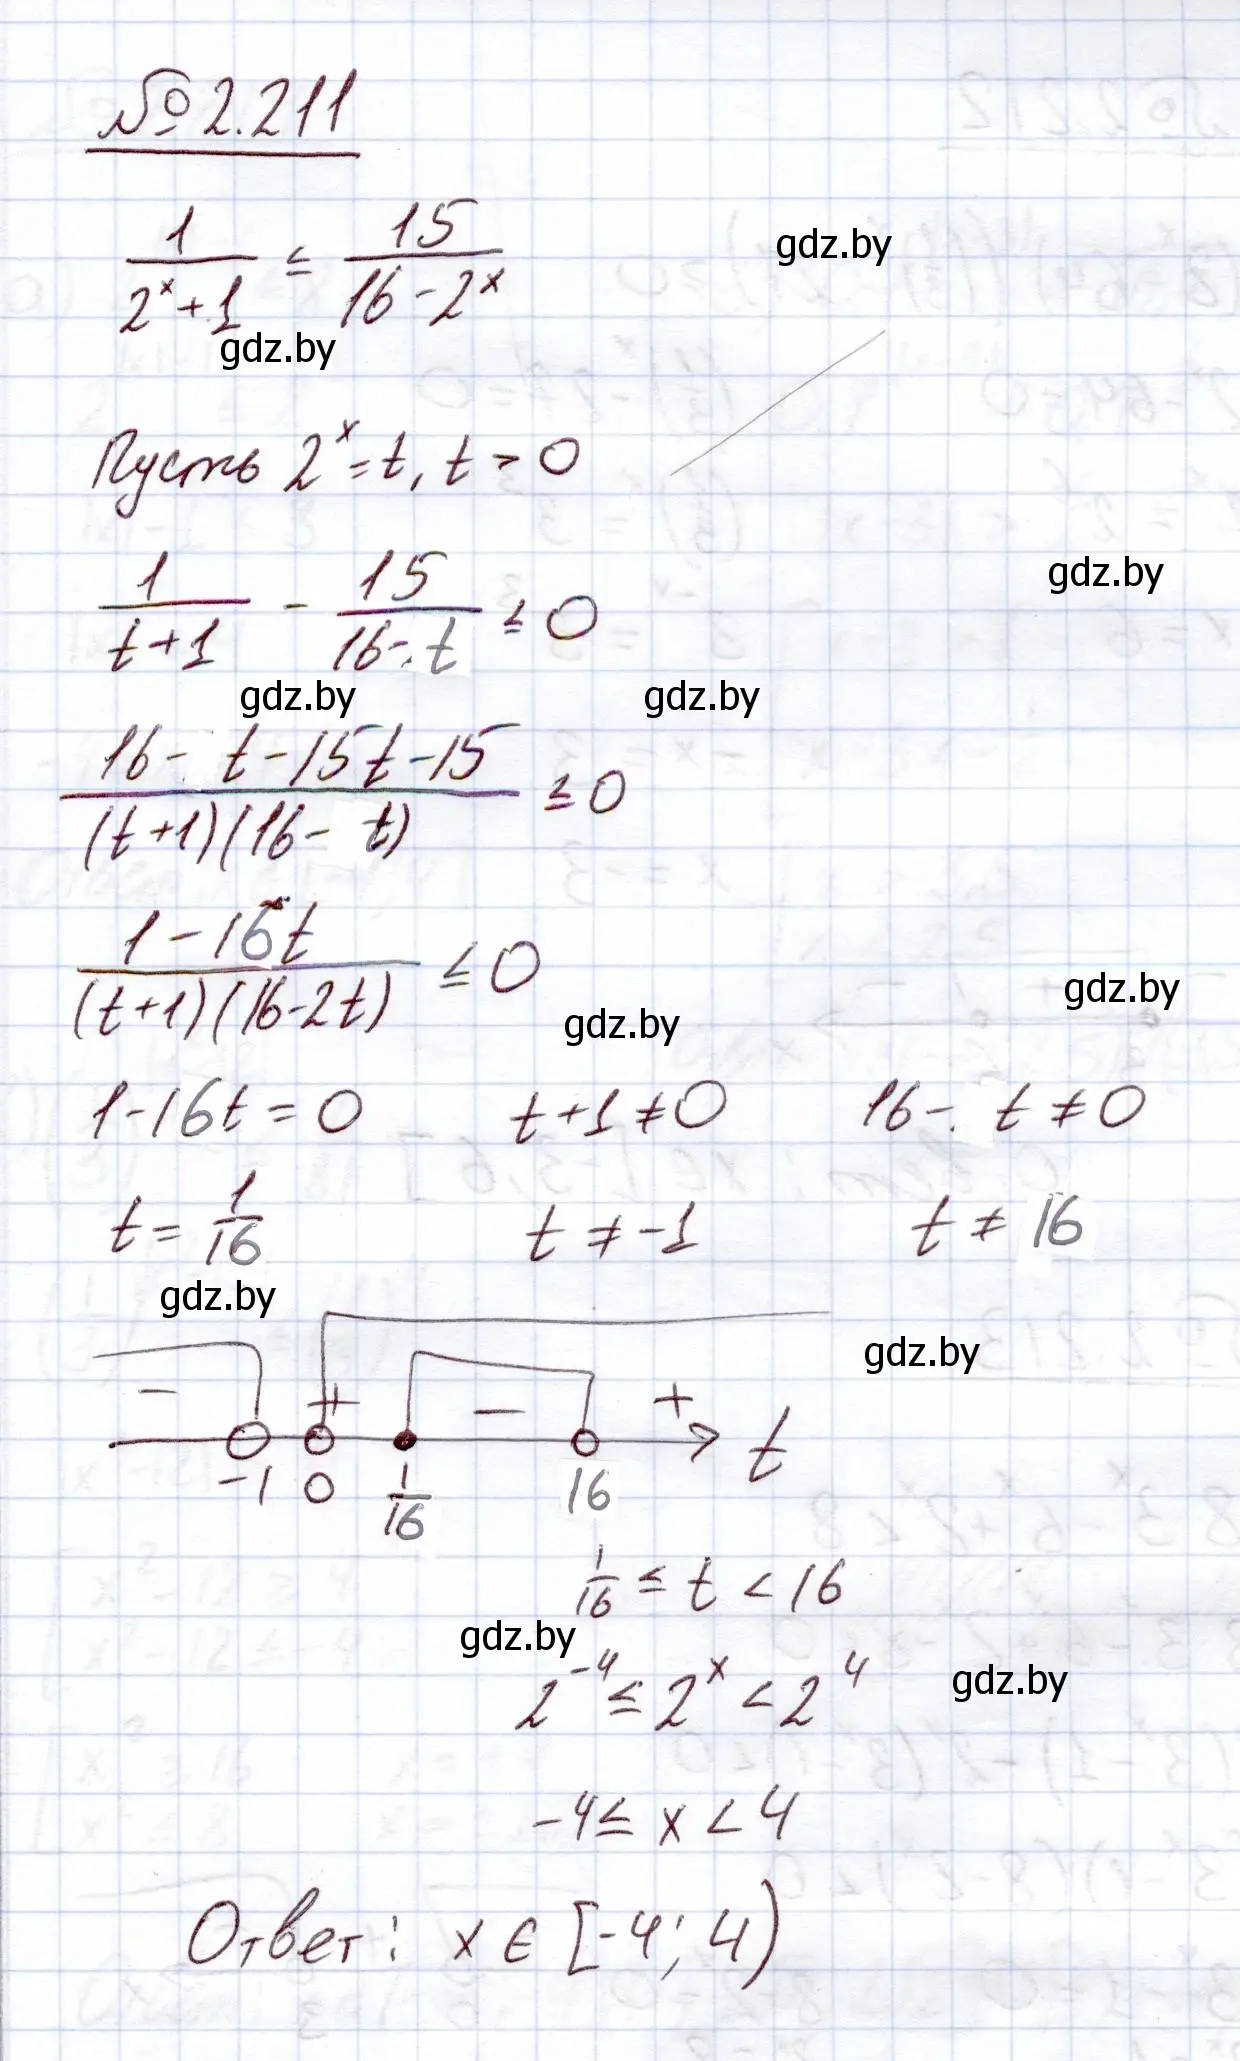 № 2.211
1/(2^x+1) ≤ 15/(16-2^x)
gdz.by
gdz.by
Пусть 2^x = t, t > 0
1/(t+1) - 15/(16-t) ≤ 0
gdz.by
gdz.by
gdz.by
(16 - t - 15t - 15)/((t+1)(16 - t)) ≤ 0
(1-16t)/((t+1)(16-2t)) ≤ 0
gdz.by
gdz.by
1-16t = 0 t+1 ≠ 0 16- t ≠ 0
t = 1/16 t ≠ -1 t ≠ 16
gdz.by
gdz.by
- + - + t
-1 0 1/16 16
1/16 ≤ t < 16
gdz.by
2^-4 ≤ 2^x < 2^4
gdz.by
-4 ≤ x < 4
Ответ: x ∈ [-4; 4)